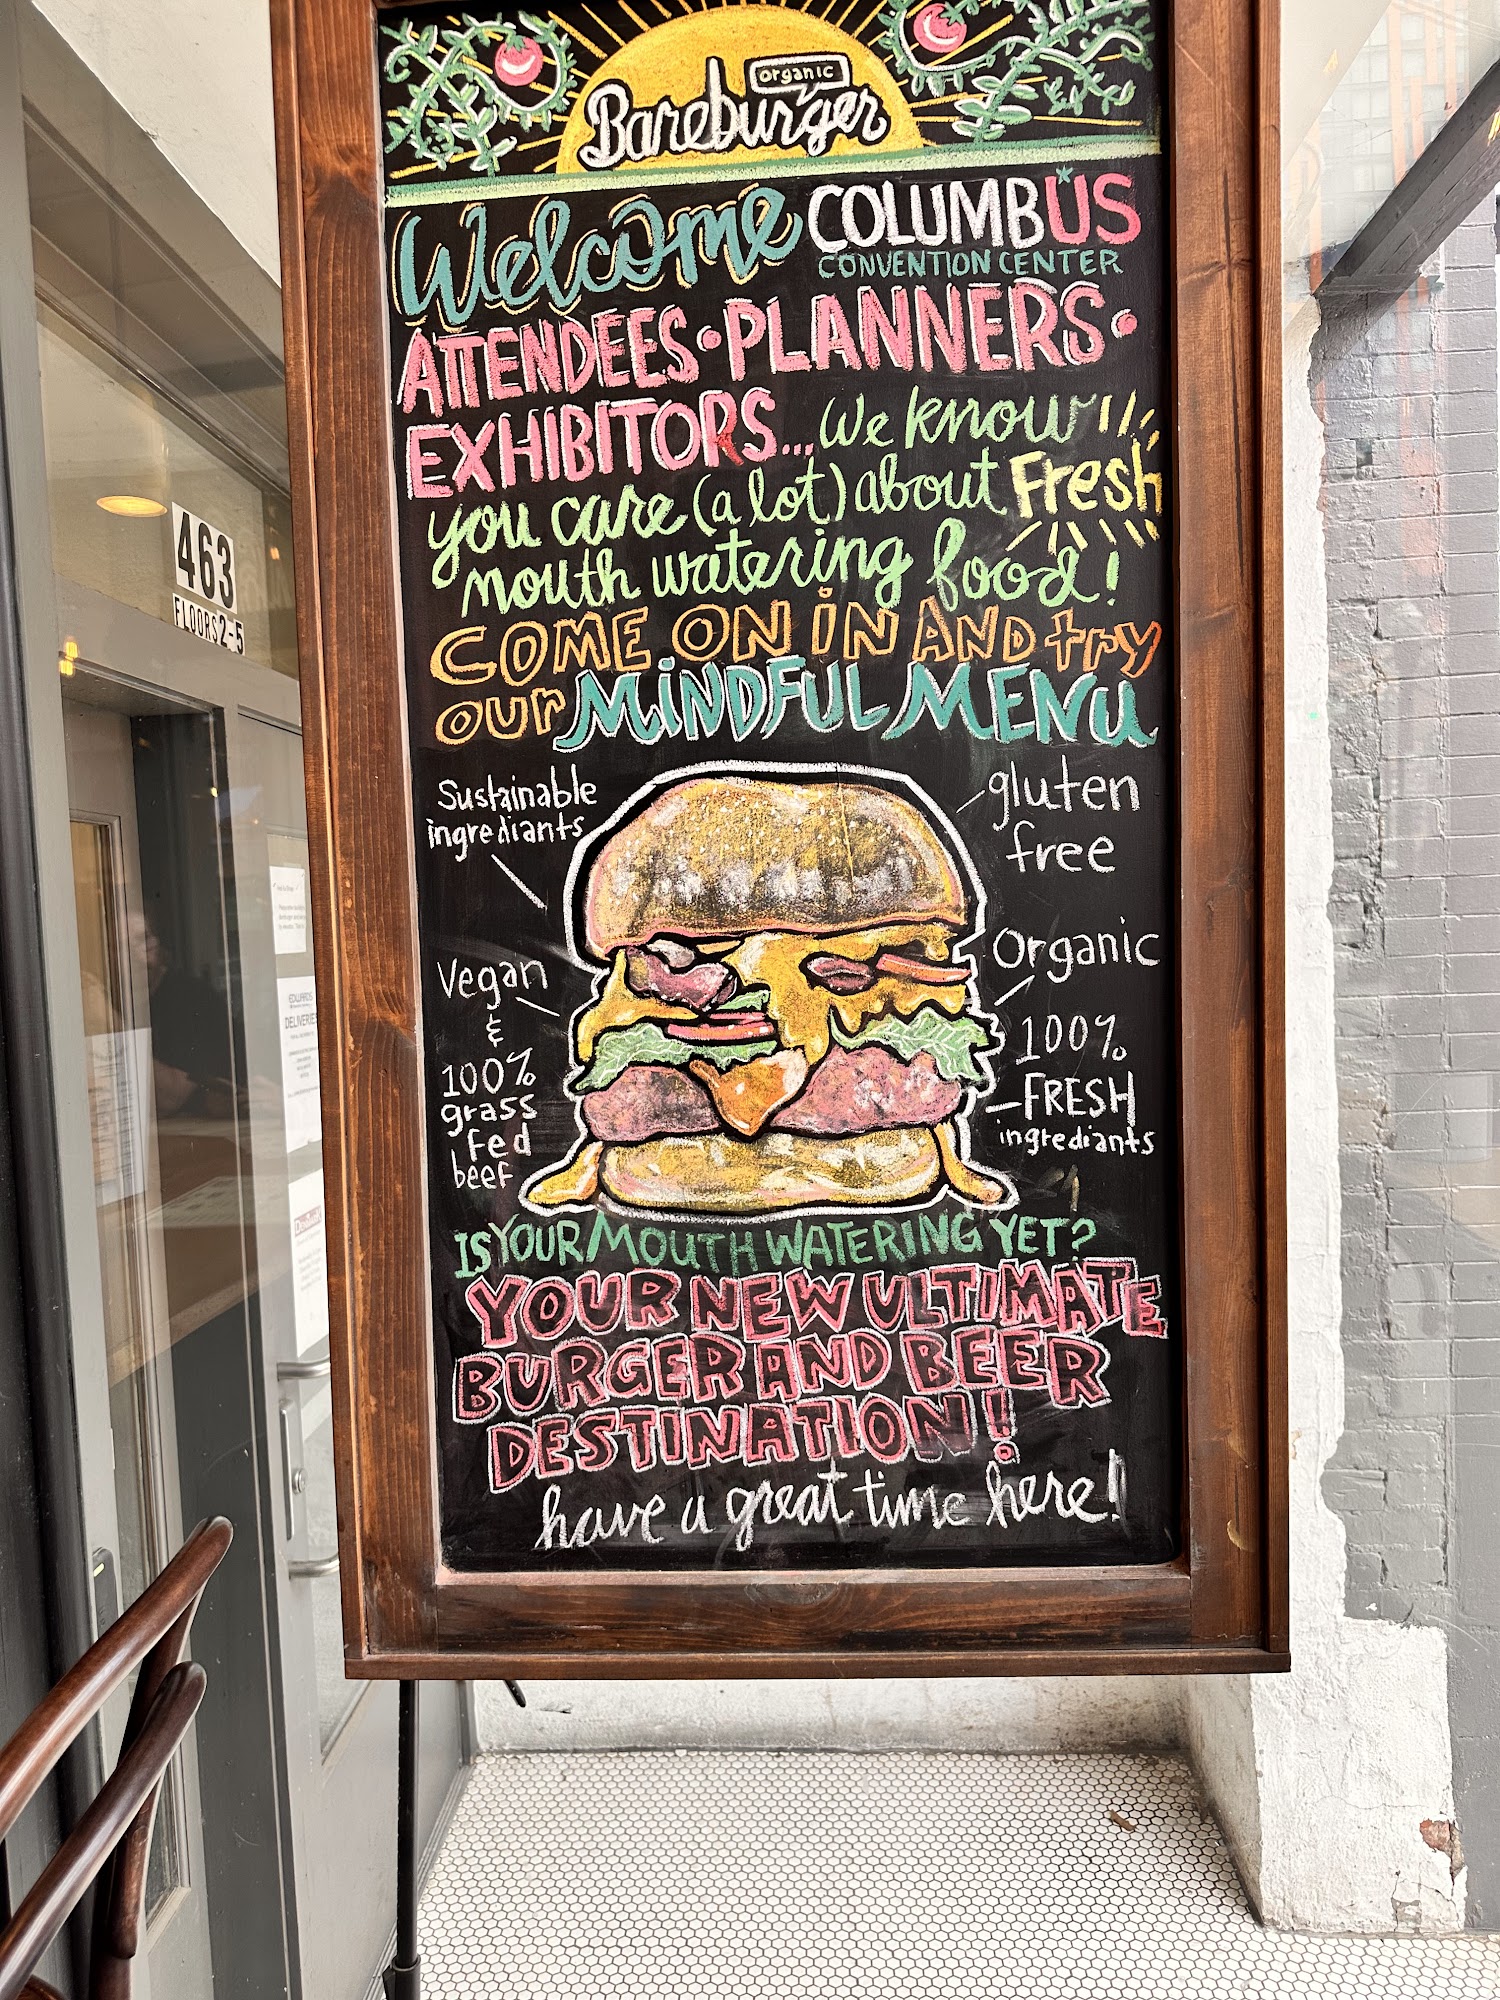 organic
Bareburger
Welcome COLUMBUS
CONVENTION CENTER
ATTENDEES • PLANNERS •
EXHIBITORS... We know
you care (a lot) about Fresh
mouth watering food!
COME ON iN AND try
our MiNDFUL MENU
Sustainable
ingrediants
gluten
free
Vegan
&
100%
grass
fed
beef
Organic
100%
FRESH
ingrediants
IS YOUR MOUTH WATERING YET?
YOUR NEW ULTIMATE
BURGER AND BEER
DESTINATION!
have a great time here!
463
FLOORS 2-5
EDWARDS
DELIVERIES